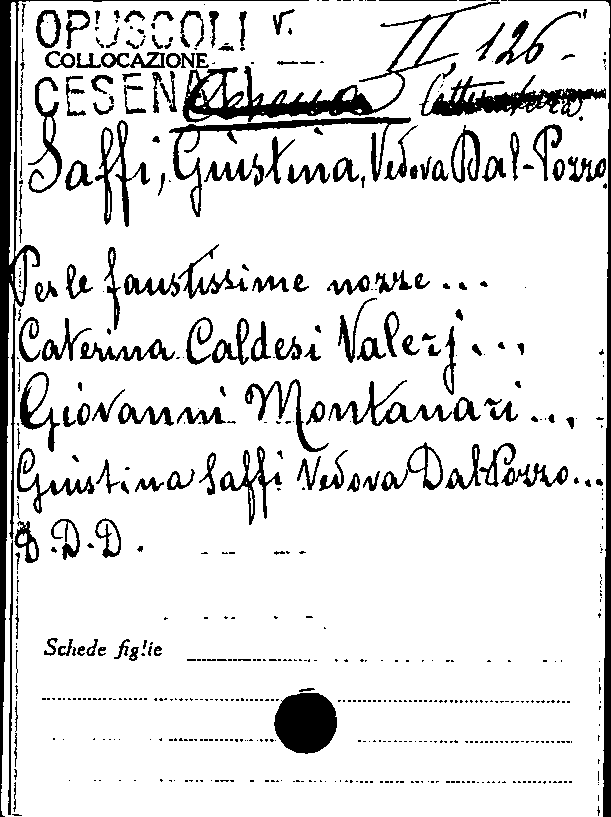 OPUSCOLI V. II, 126-
COLLOCAZIONE
CESENATI
Saffi, Giustina, Vedova Dal-Pozzo
Per le faustissime nozze...
Caterina Caldesi Valerj...
Giovanni Montanari...
Giustina Saffi Vedova Dal-Pozzo...
D.D.D.
Schede figlie